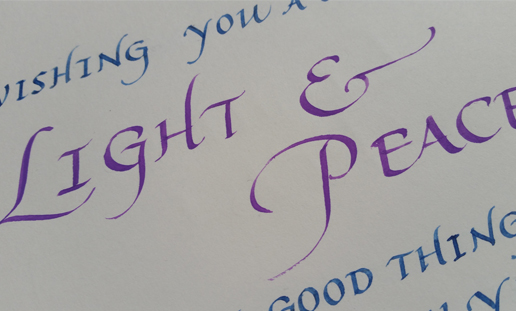 WISHING YOU A
LIGHT &
PEACE
GOOD THING